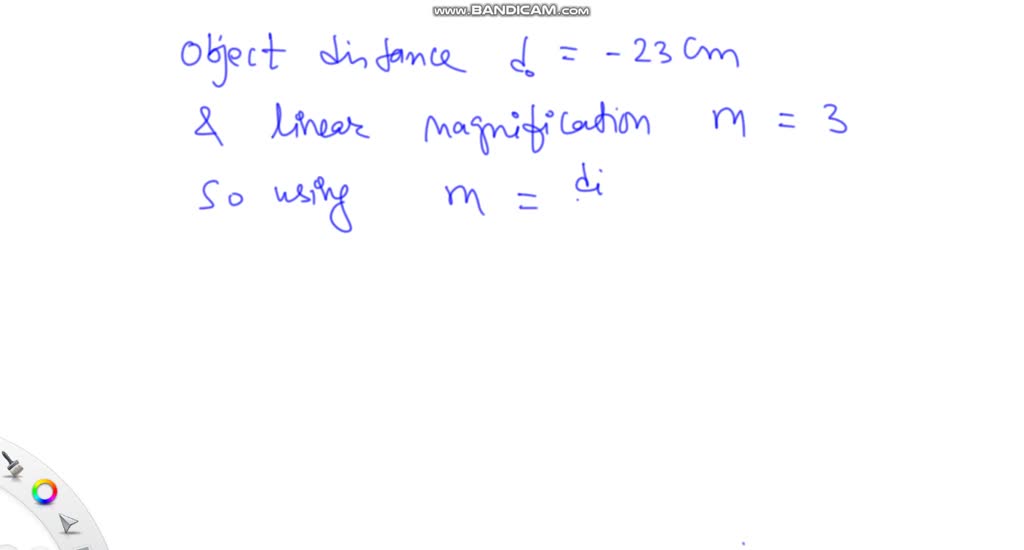 www.BANDICAM.com
Object distance do = - 23 cm
& linear magnification m = 3
So using m = di